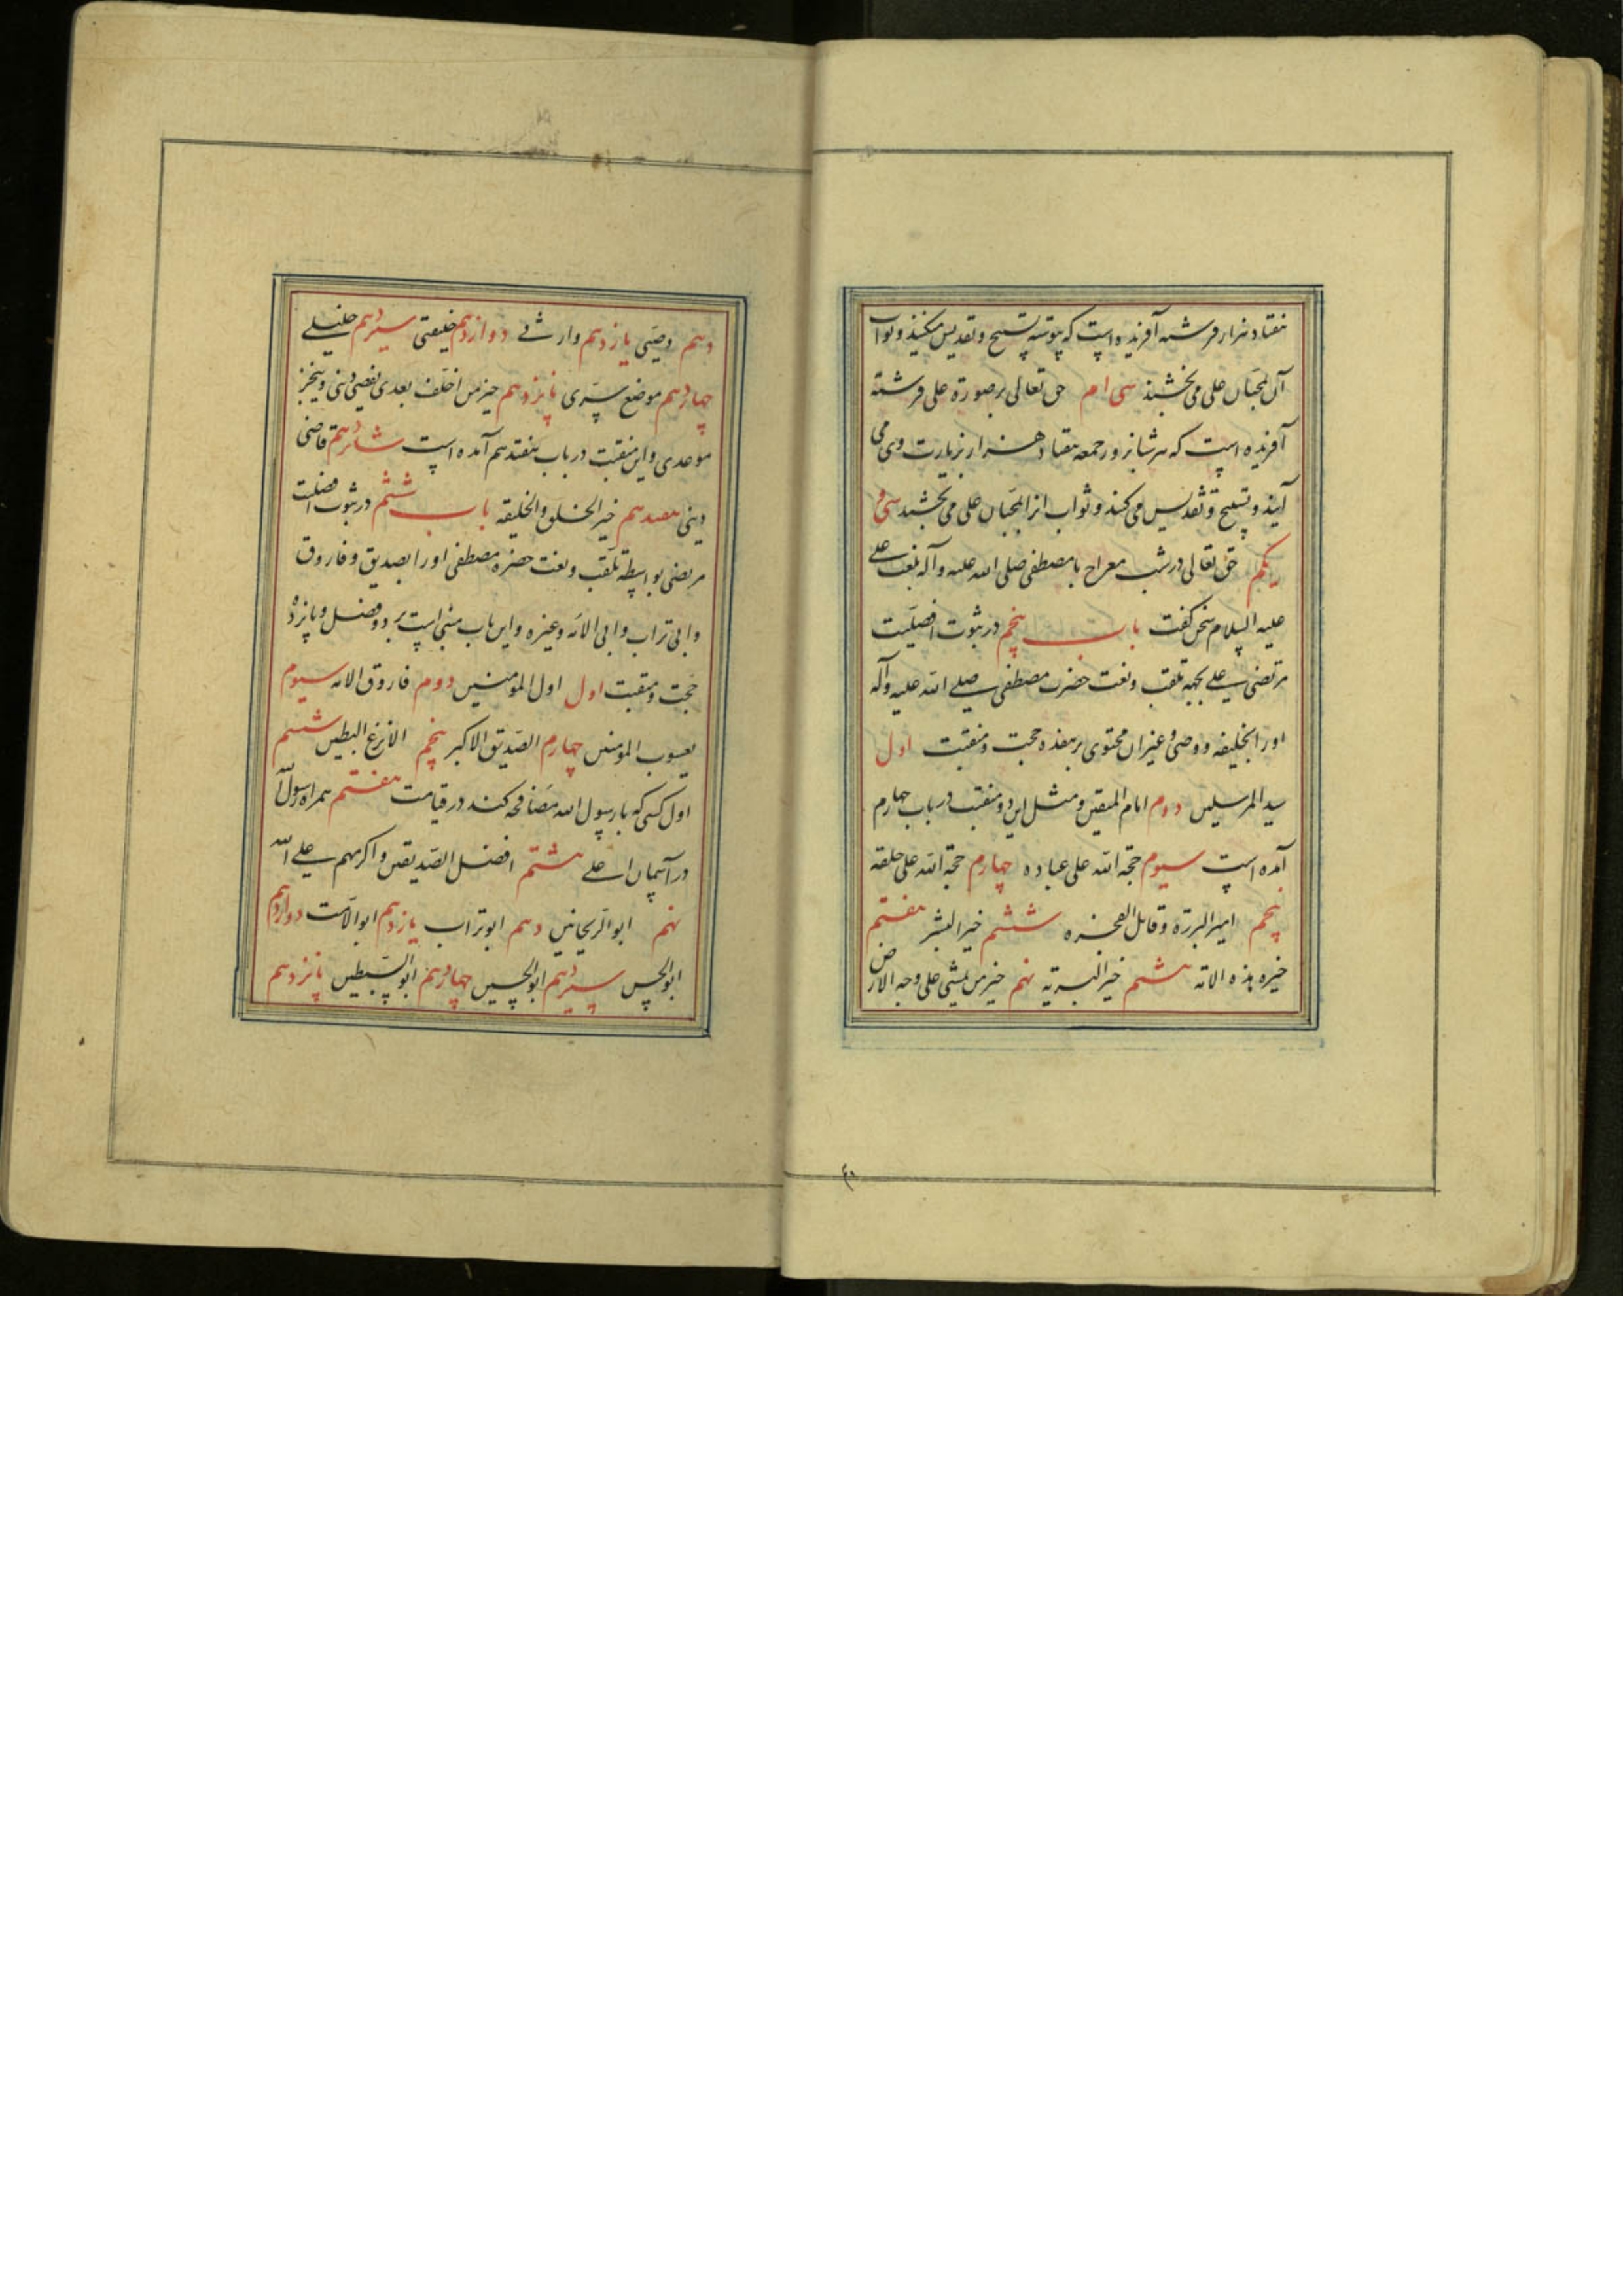 هفتاد هزار فرشته آفریده است که پیوسته تسبیح و تقدیس میکنند و ثواب
آن بمحبان علی می بخشند سی ام حق تعالی بر صورة علی فرشتهٔ
آفریده است که هر شبانروز جمعه هفتاد هزار بزیارت وی می
آیند و تسبیح و تقدیس می کنند و ثواب انرا بمحبان علی می بخشند سی و
یکم حق تعالی در شب معراج با مصطفی صلی الله علیه وآله بلغت علی
علیه السلام سخن گفت باب پنجم در ثبوت افضلیت
مرتضی علی بجهه تلقب و نعت حضرت مصطفی صلی الله علیه وآله
اورا بخلیفه و وصی و غیر ان محتوی بر هفده حجت و منقبت اول
سید المرسلین دوم امام المتقین و مثل این دو منقبت در باب چهارم
آمده است سیوم حجة الله علی عباده چهارم حجة الله علی خلقه
پنجم امیر البررة و قاتل الفجره ششم خیر البشر هفتم
خیره هذه الامه هشتم خیر البریه نهم خیر من یمشی علی وجه الارض
۴۵
دهم وصیی یازدهم وارثی دوازدهم خلیفتی سیزدهم خلیلی
چهاردهم موضع سرّی پانزدهم خیر من اخلف بعدی یقضی دینی و ینجز
موعدی و این منقبت در باب هفتدهم آمده است شانزدهم قاضی
دینی هفدهم خیر الخلق و الخلیقه باب ششم در ثبوت افضلیت
مرتضی بواسطه تلقب و نعت حضرة مصطفی اورا بصدیق و فاروق
و ابی تراب و ابی الائمه و غیره و این باب مبنی است بر دو فصل و پانزده
حجت و منقبت اول اول المؤمنین دوم فاروق الامه سیوم
یعسوب المؤمنین چهارم الصدیق الاکبر پنجم الانزع البطین ششم
اول کسی که با رسول الله مصافحه کند در قیامت هفتم همراه رسول الله
در آسمان اعلی هشتم افضل الصدیقین و اکرمهم علی الله
نهم ابو الریحانین دهم ابو تراب یازدهم ابو الامت دوازدهم
ابو الحسن سیزدهم ابو الحسین چهاردهم ابو السبطین پانزدهم